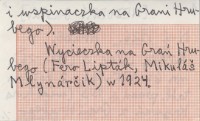 i wspinaczka na Grani Hru-
bego).
Wycieczka na Grań Hru-
bego (Fero Lipták, Mikuláš
Mlynárčik) w 1924.